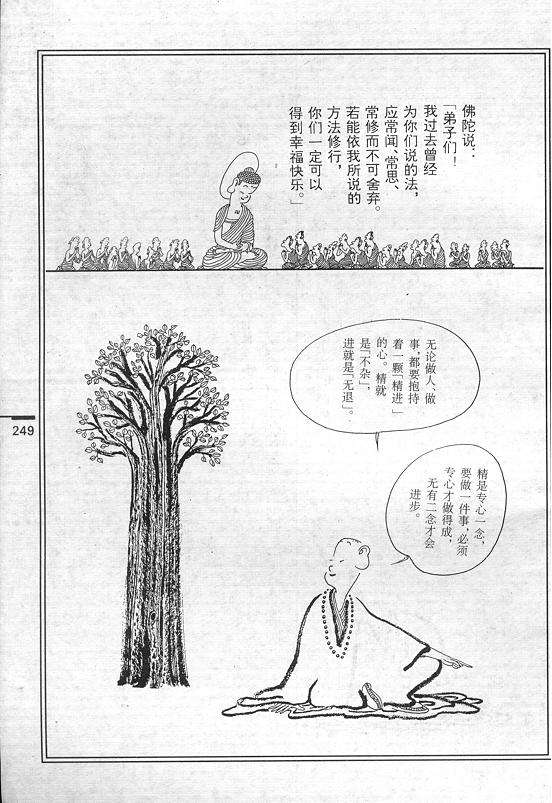 佛陀说：
「弟子们！
我过去曾经
为你们说的法，
应常闻、常思、
常修而不可舍弃。
若能依我所说的
方法修行，
你们一定可以
得到幸福快乐。」
无论做人、做
事，都要抱持
着一颗「精进」
的心。精就
是「不杂」，
进就是「无退」。
精是专心一念，
要做一件事，必须
专心才做得成，
无有二念才会
进步。
249